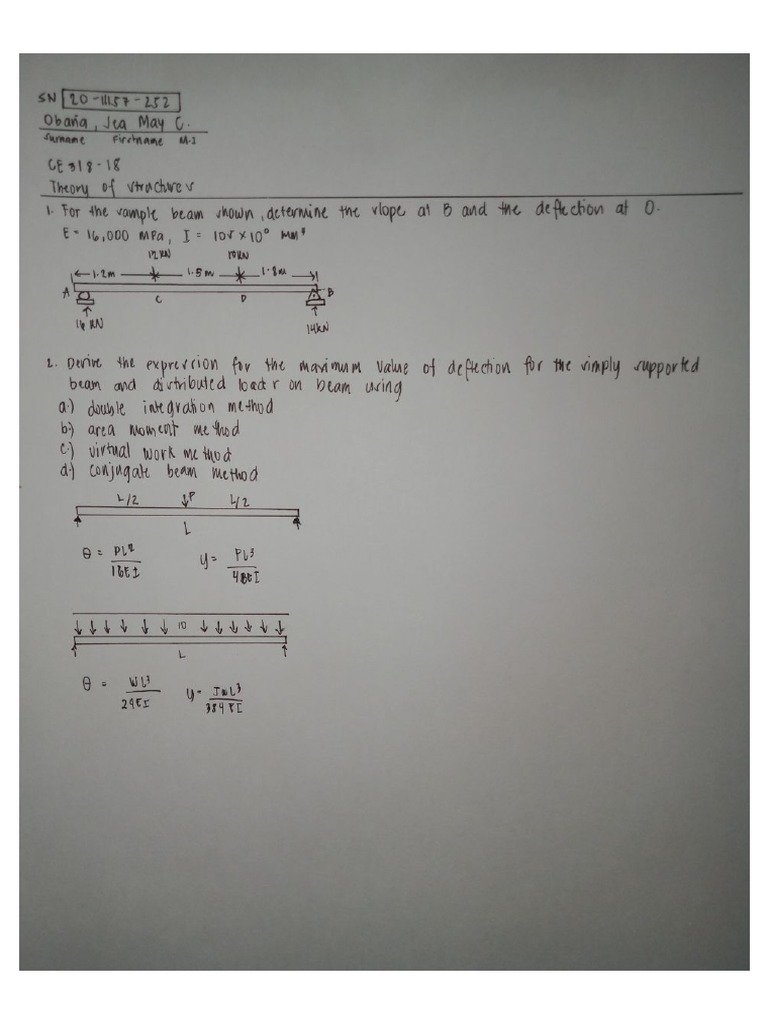 SN 20-11157-252
Obaña, Jea May C.
Surname Firstname M.I
CE 318-18
Theory of structures
1. For the sample beam shown, determine the slope at B and the deflection at D.
E = 16,000 MPa, I = 105 x 10⁰ mm⁴
12 KN 18 KN
1.2m 1.5m 1.8m
A C D B
16 KN 14 KN
2. Derive the expression for the maximum value of deflection for the simply supported
beam and distributed loads on beam using
a.) double integration method
b.) area moment method
c.) virtual work method
d.) conjugate beam method
L/2 P L/2
L
θ = PL² / 16EI y = PL³ / 48EI
L
θ = WL³ / 24EI y = 5WL³ / 384EI